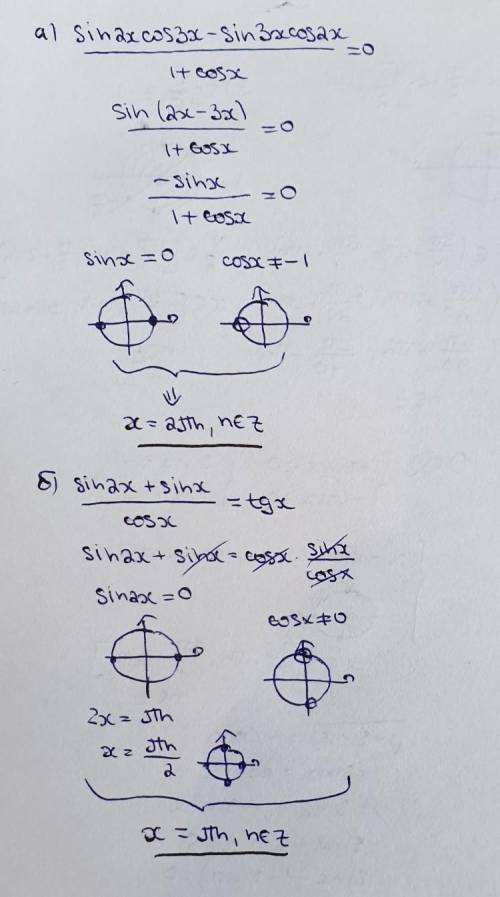 а) sin2xcos3x-sin3xcos2x / 1+cosx =0
sin(2x-3x) / 1+cosx =0
-sinx / 1+cosx =0
sinx=0 cosx≠-1
⇓
x=2πn, n∈Z
б) sin2x+sinx / cosx =tgx
sin2x+sinx=cosx·sinx/cosx
sin2x=0
cosx≠0
2x=πn
x=πn/2
x=πn, n∈Z